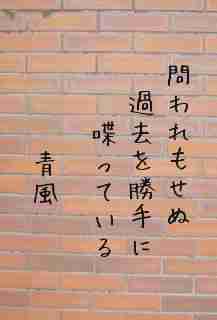 問われもせぬ
過去を勝手に
喋っている
青風